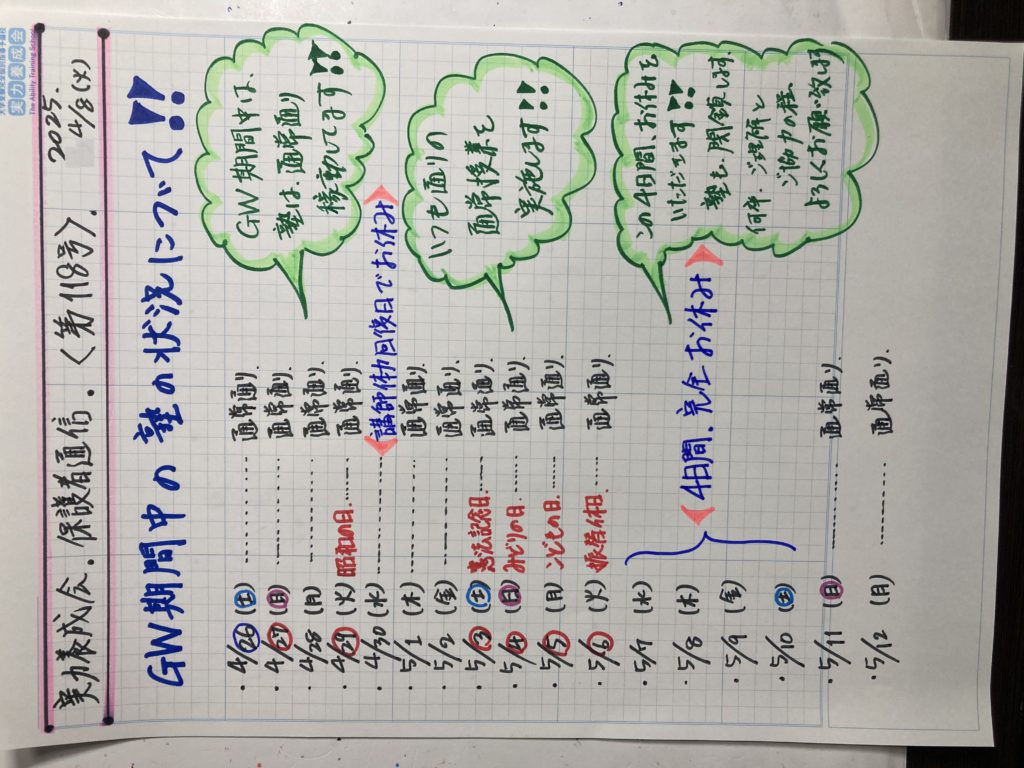 実力養成会
The Ability Training School
実力養成会.保護者通信.〈第118号〉.
2025.
4/8(火)
GW期間中の塾の状況について!!
・4/26(土)………通常通り.
・4/27(日)………通常通り.
・4/28(月)………通常通り.
・4/29(火)昭和の日.……通常通り.
・4/30(水)………講師休力回復日でお休み
・5/1(木)………通常通り.
・5/2(金)………通常通り.
・5/3(土)憲法記念日.……通常通り.
・5/4(日)みどりの日.……通常通り.
・5/5(月)こどもの日.……通常通り.
・5/6(火)振替休日.……通常通り.
・5/7(水)
・5/8(木)
・5/9(金)
・5/10(土)
4日間、完全お休み
・5/11(日)………通常通り.
・5/12(月)………通常通り.
GW期間中は、
塾は、通常通り
稼動してます!!
いつも通りの
通常授業を
実施します!!
この4日間、お休みを
いただきます!!
塾も、閉鎖します。
何卒、ご理解と
ご協力の程、
よろしくお願い致します